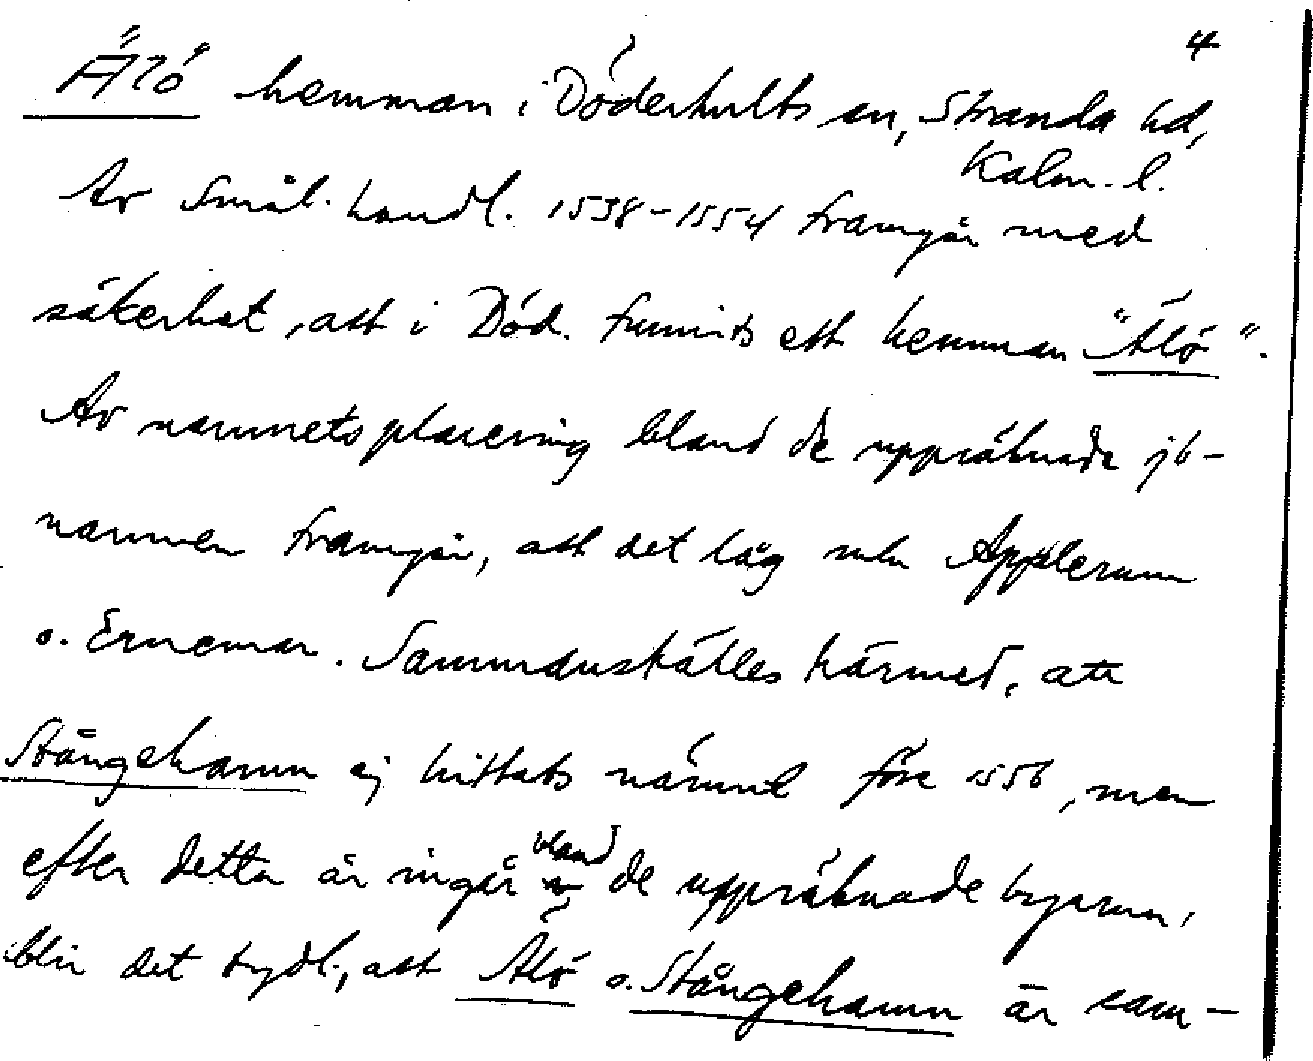 4
Älö hemman i Döderhults sn, Stranda hd,
Kalm. l.
Av Smål. handl. 1538-1554 framgår med
säkerhet, att i Död. funnits ett hemman "Älö".
Av namnets placering bland de uppräknade jb-
namnen framgår, att det låg mln Applerum
o. Ernemar. Sammanställes härmed, att
Stångehamn ej hittats nämnt före 1556, men
efter detta år ingår bland de uppräknade byarna,
blir det tydl., att Älö o. Stångehamn är sam-